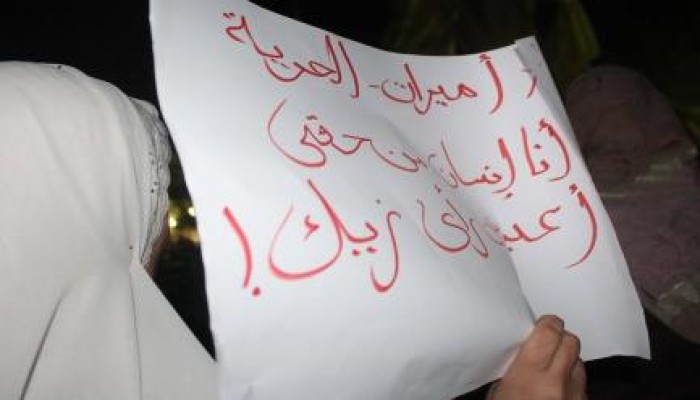 أميران الحرية
أنا إنسان من حقي
أعبر رأي زيك!